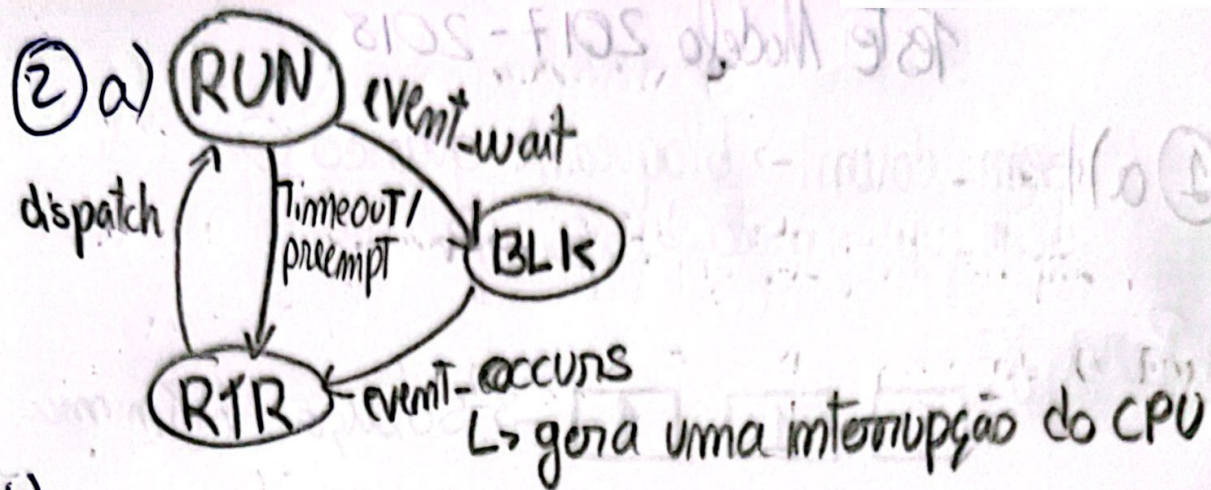 ② a) RUN
event_wait
dispatch
Timeout/
preempt
BLK
RTR
event-occurs
↳ gera uma interrupção do CPU